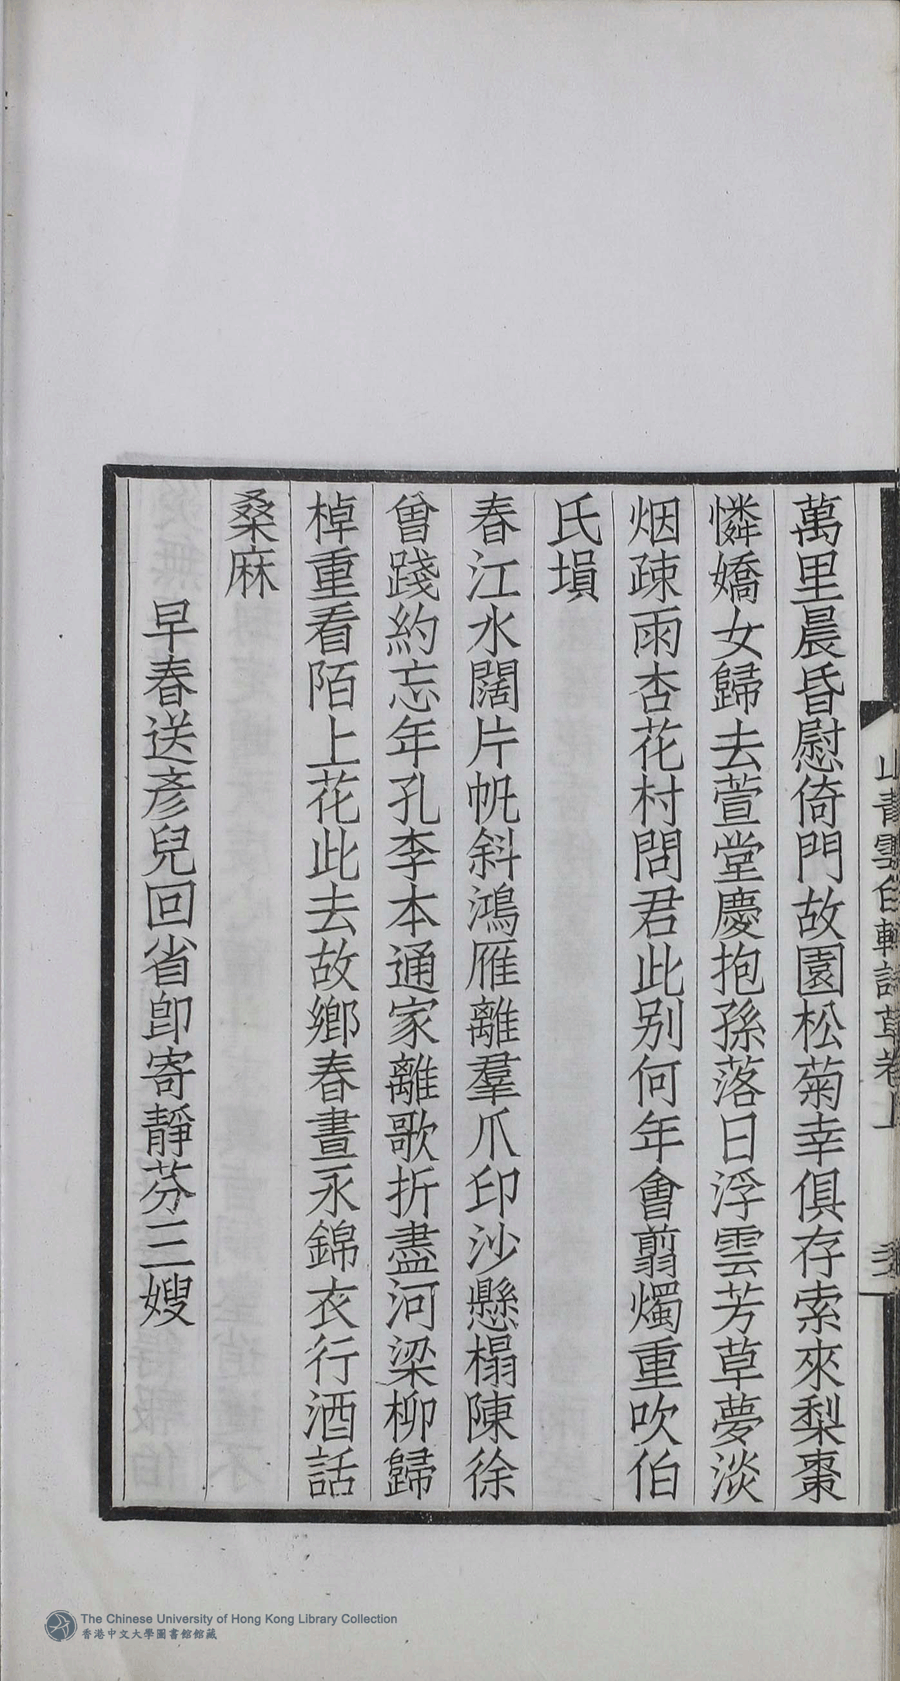 萬里晨昏慰倚門故園松菊幸俱存索來梨棗
憐嬌女歸去萱堂慶抱孫落日浮雲芳草夢淡
烟疎雨杏花村問君此别何年會翦燭重吹伯
氏塤
春江水闊片帆斜鴻雁離羣爪印沙懸榻陳徐
曾踐約忘年孔李本通家離歌折盡河梁柳歸
棹重看陌上花此去故鄉春晝永錦衣行酒話
桑麻
早春送彥兒回省卽寄靜芬三嫂
The Chinese University of Hong Kong Library Collection
香港中文大學圖書館館藏